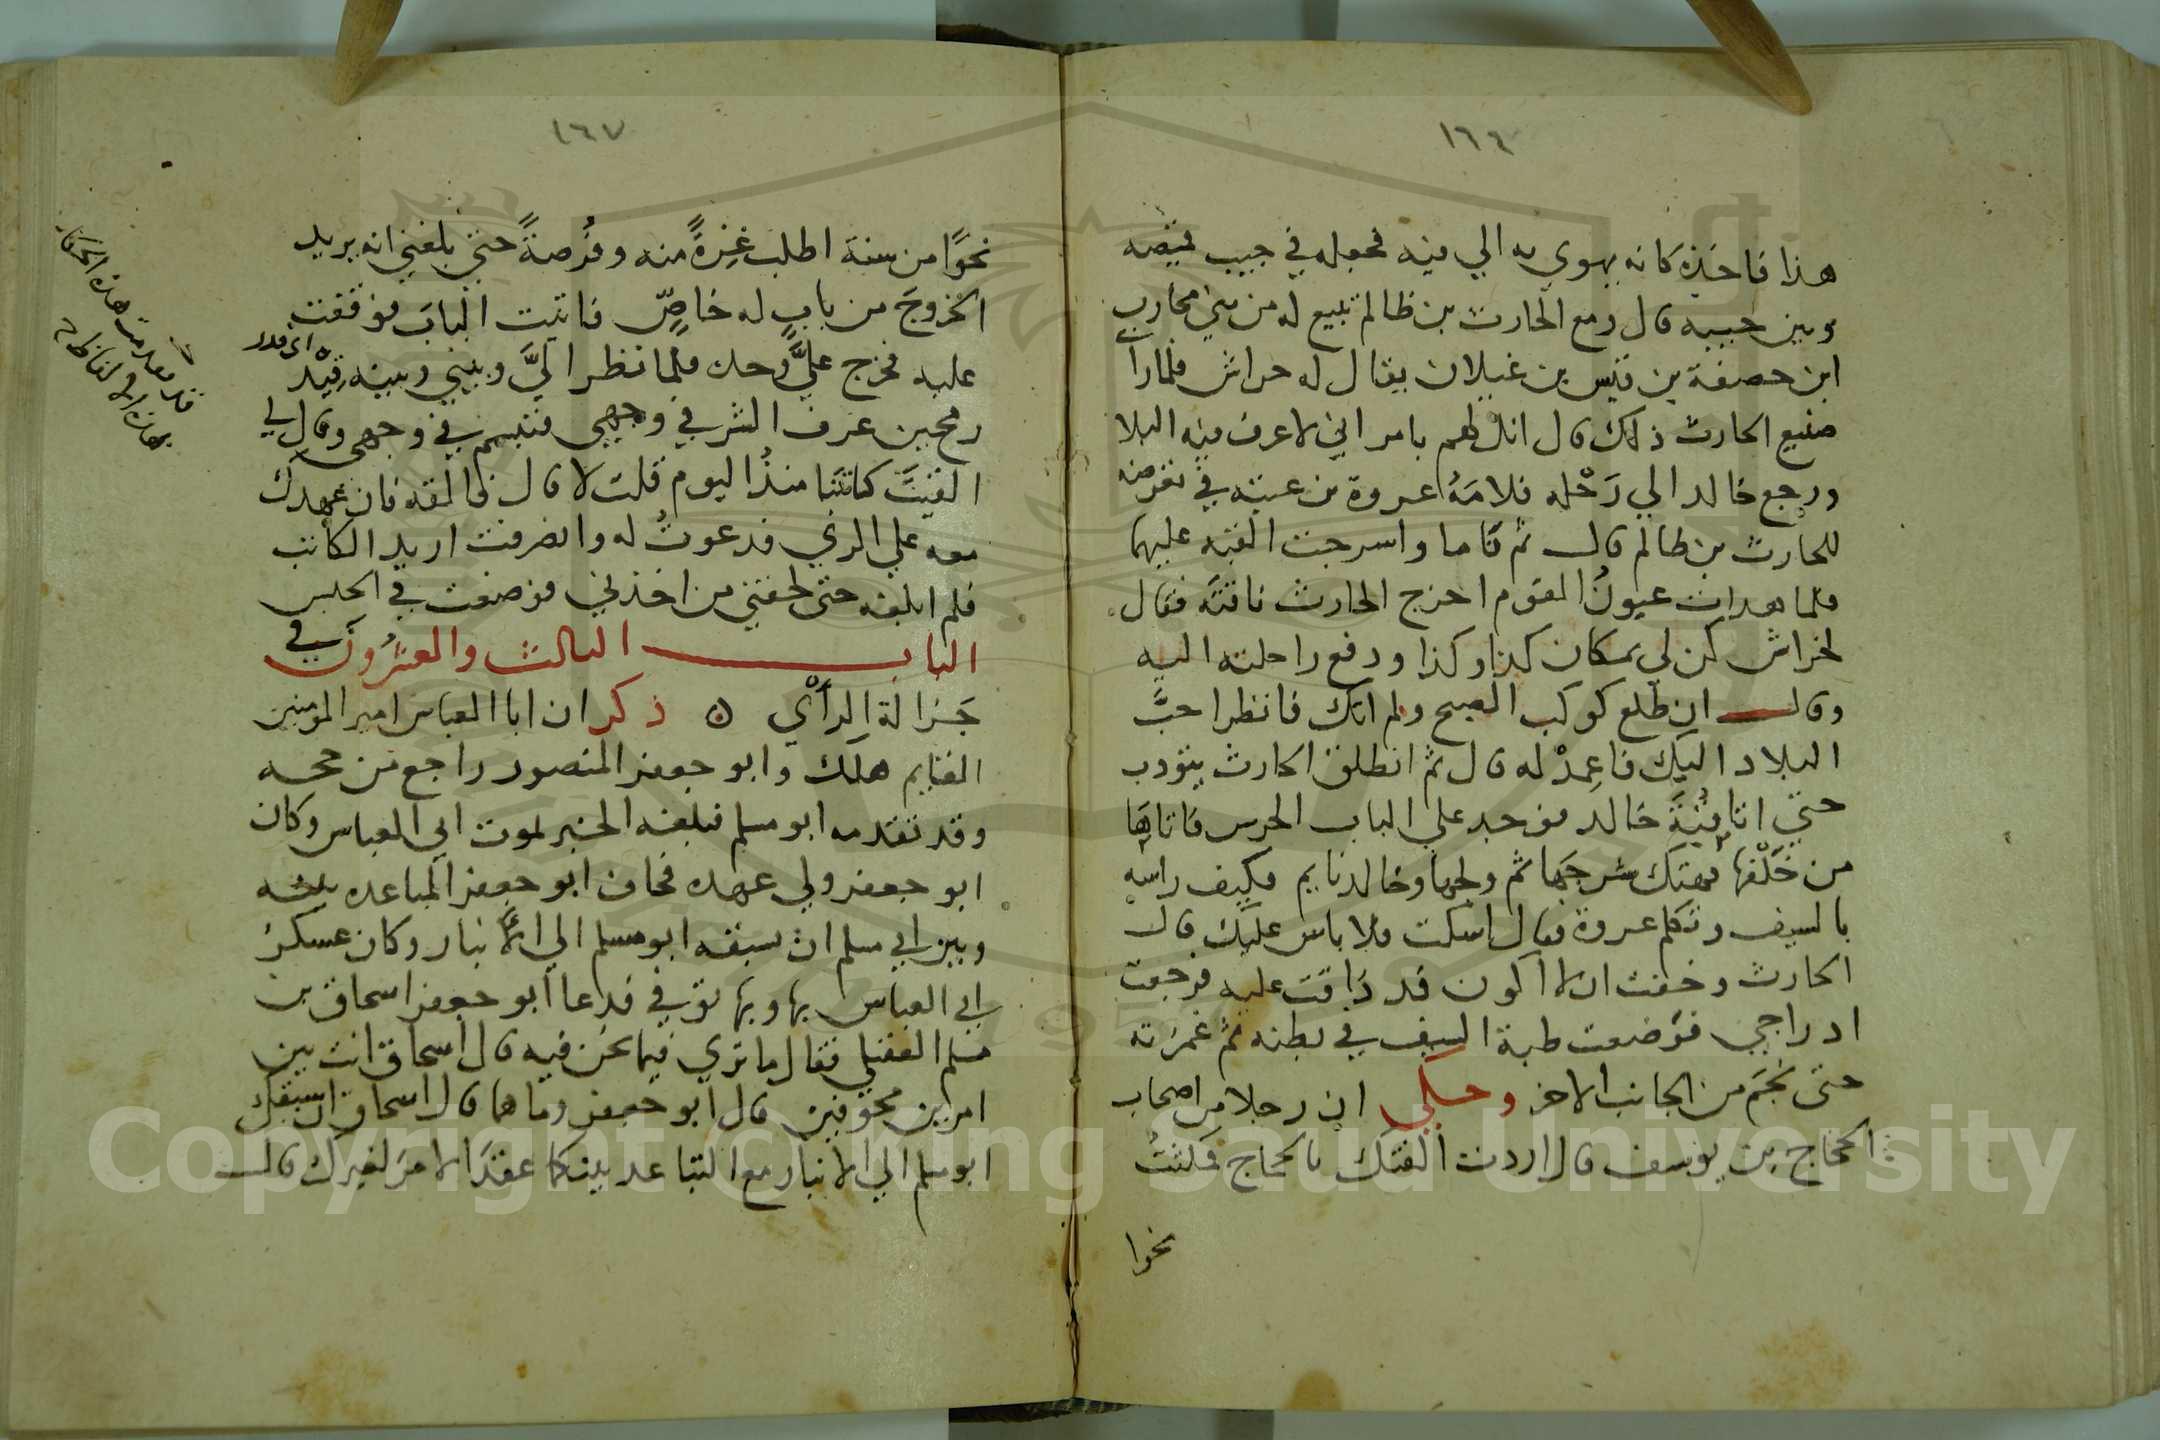 ١٦٤
هذا فاخذه كانه يهوي به الي فيه فجعله في جيب قميصه
وبين جبيبه قال ومع الحارث بن ظالم تبيع له من بني محارب
ابن حصفة بن قيس بن غيلان يقال له حراش فلما راا
صنيع الحارث ذلك قال انك لهم بامر اني لاعرف فيه البلا
ورجع خالد الي رَحْله فلامَهُ عروة بن عتبه في تعرضه
للحارث بن ظالم قال ثم قاما واسرجت القبه عليهما
فلما هدات عيونُ القوم اخرج الحارث ناقتَه فقال
لخراش كن لي بمكان كذا وكذا ودفع راحلته اليه
وقال ان طلع كوكب الصبح ولم اتك فانظر احبَّ
البلاد اليك فاعمِدْ له قال ثم انطلق الحارث يتودب
حتي اتا قبَّةَ خالد فوجد علي الباب الحرس فاتاهَا
من خَلْفها فهتك شرجَها ثم ولجها وخالد نايم فكيف راسه
بالسيف وتكلم عروة فقال اسكت فلا باس عليك قال
الحارث وخفت ان لا اكون قد ذافت عليه فرجعت
ادراجي فوضعت ظبة السيف في بطنه ثم غمزته
حتى نجَم من الجانب الاخر وحكي ان رجلا من اصحاب
الحجاج بن يوسف قال اردت الفتك بالحجاج فمكثتُ
نحوا
١٦٧
نحوًا من سنة اطلب غِرةً منه وفُرصةً حتي بلغني انه يريد
الخروجَ من بابٍ له خاصٍّ فاتيت البابَ فوقفت
عليه فخرج عليَّ وحده فلما نظر اليَّ وبيني وبينه قِيد
اي قدر
رمحين عرف الشر في وجهي فتبسم في وجهي وقال لي
القيتَ كاتبَنا منذُ اليوم قلت لا قال فالقه فان عهدك
معه علي الري فدعوتُ له وانصرفت اريد الكاتب
فلم ابلغه حتى لحقني من اخذني فوضعت في الحبس
الباب الثالث والعشرُون في
جَزالة الرأْي ه ذكر ان ابا العباس امير المومنين
القايم هلك وابو جعفر المنصور راجع من حجه
وقد تقدمه ابو مسلم فبلغه الخبر لموت ابي العباس وكان
ابو جعفر ولي عهده فخاف ابو جعفر المباعده بينه
وبين ابي مسلم ان سبقه ابو مسلم الي الانبار وكان عسكرُ
ابي العباس بها وبها توفي فدعا ابو جعفر اسحاق بن
مسلم العقيلي فقال ما تري فيما نحن فيه قال اسحاق انت بين
امرين مخوفين قال ابو جعفر وما هما قال اسحاق ان سبقك
ابو مسلم الي الانبار مع التباعد بينكما عقدَ الامرَ لغيرك قال
قد تقدمت هذه الحكاية